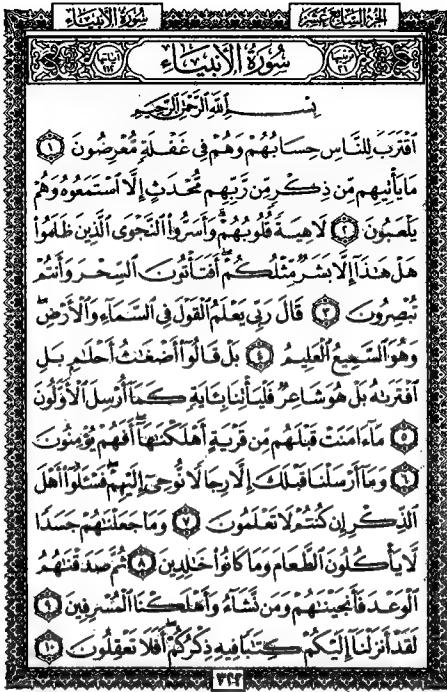 الجزء السابع عشر
سُورَةُ الأَنبِيَاء
ترتيبها ٢١ سُورَةُ الأَنبِيَاءِ آياتها ١١٢
بِسْمِ ٱللَّهِ ٱلرَّحْمَٰنِ ٱلرَّحِيمِ
ٱقْتَرَبَ لِلنَّاسِ حِسَابُهُمْ وَهُمْ فِى غَفْلَةٍ مُّعْرِضُونَ ١
مَا يَأْتِيهِم مِّن ذِكْرٍ مِّن رَّبِّهِم مُّحْدَثٍ إِلَّا ٱسْتَمَعُوهُ وَهُمْ
يَلْعَبُونَ ٢ لَاهِيَةً قُلُوبُهُمْ ۗ وَأَسَرُّوا۟ ٱلنَّجْوَى ٱلَّذِينَ ظَلَمُوا۟
هَلْ هَٰذَآ إِلَّا بَشَرٌ مِّثْلُكُمْ ۖ أَفَتَأْتُونَ ٱلسِّحْرَ وَأَنتُمْ
تُبْصِرُونَ ٣ قَالَ رَبِّى يَعْلَمُ ٱلْقَوْلَ فِى ٱلسَّمَآءِ وَٱلْأَرْضِ ۖ
وَهُوَ ٱلسَّمِيعُ ٱلْعَلِيمُ ٤ بَلْ قَالُوٓا۟ أَضْغَٰثُ أَحْلَٰمٍۭ بَلِ
ٱفْتَرَىٰهُ بَلْ هُوَ شَاعِرٌ فَلْيَأْتِنَا بِـَٔايَةٍ كَمَآ أُرْسِلَ ٱلْأَوَّلُونَ
٥ مَآ ءَامَنَتْ قَبْلَهُم مِّن قَرْيَةٍ أَهْلَكْنَٰهَآ ۖ أَفَهُمْ يُؤْمِنُونَ
٦ وَمَآ أَرْسَلْنَا قَبْلَكَ إِلَّا رِجَالًا نُّوحِىٓ إِلَيْهِمْ ۖ فَسْـَٔلُوٓا۟ أَهْلَ
ٱلذِّكْرِ إِن كُنتُمْ لَا تَعْلَمُونَ ٧ وَمَا جَعَلْنَٰهُمْ جَسَدًا
لَّا يَأْكُلُونَ ٱلطَّعَامَ وَمَا كَانُوا۟ خَٰلِدِينَ ٨ ثُمَّ صَدَقْنَٰهُمُ
ٱلْوَعْدَ فَأَنجَيْنَٰهُمْ وَمَن نَّشَآءُ وَأَهْلَكْنَا ٱلْمُسْرِفِينَ ٩
لَقَدْ أَنزَلْنَآ إِلَيْكُمْ كِتَٰبًا فِيهِ ذِكْرُكُمْ ۖ أَفَلَا تَعْقِلُونَ ١٠
٣٢٢